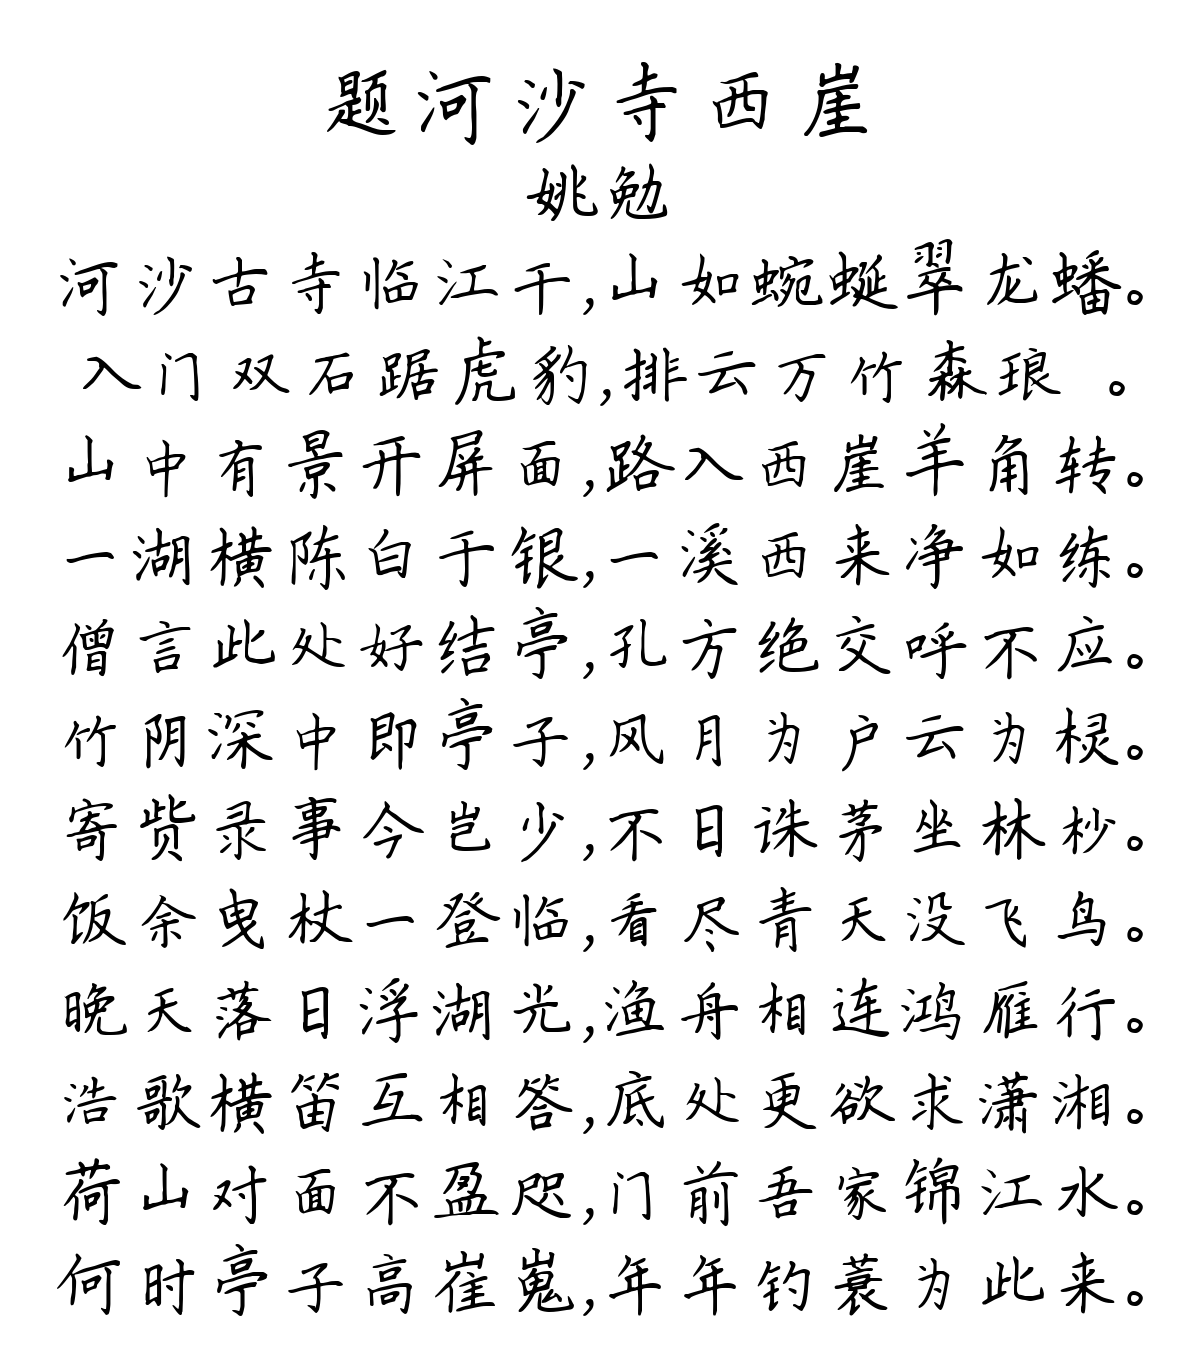 题河沙寺西崖
姚勉
河沙古寺临江干,山如蜿蜒翠龙蟠。
入门双石踞虎豹,排云万竹森琅 。
山中有景开屏面,路入西崖羊角转。
一湖横陈白于银,一溪西来净如练。
僧言此处好结亭,孔方绝交呼不应。
竹阴深中即亭子,风月为户云为棂。
寄赀录事今岂少,不日诛茅坐林杪。
饭余曳杖一登临,看尽青天没飞鸟。
晚天落日浮湖光,渔舟相连鸿雁行。
浩歌横笛互相答,底处更欲求潇湘。
荷山对面不盈咫,门前吾家锦江水。
何时亭子高崔嵬,年年钓蓑为此来。